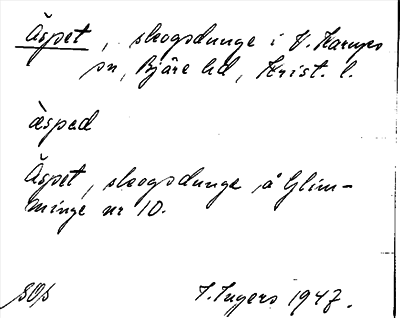 Äspet, skogsdunge i V. Karups
sn, Bjäre hd, Krist. l.
æsped
Äspet, skogsdunge å Glim-
minge nr 10.
I. Ingers 1947.